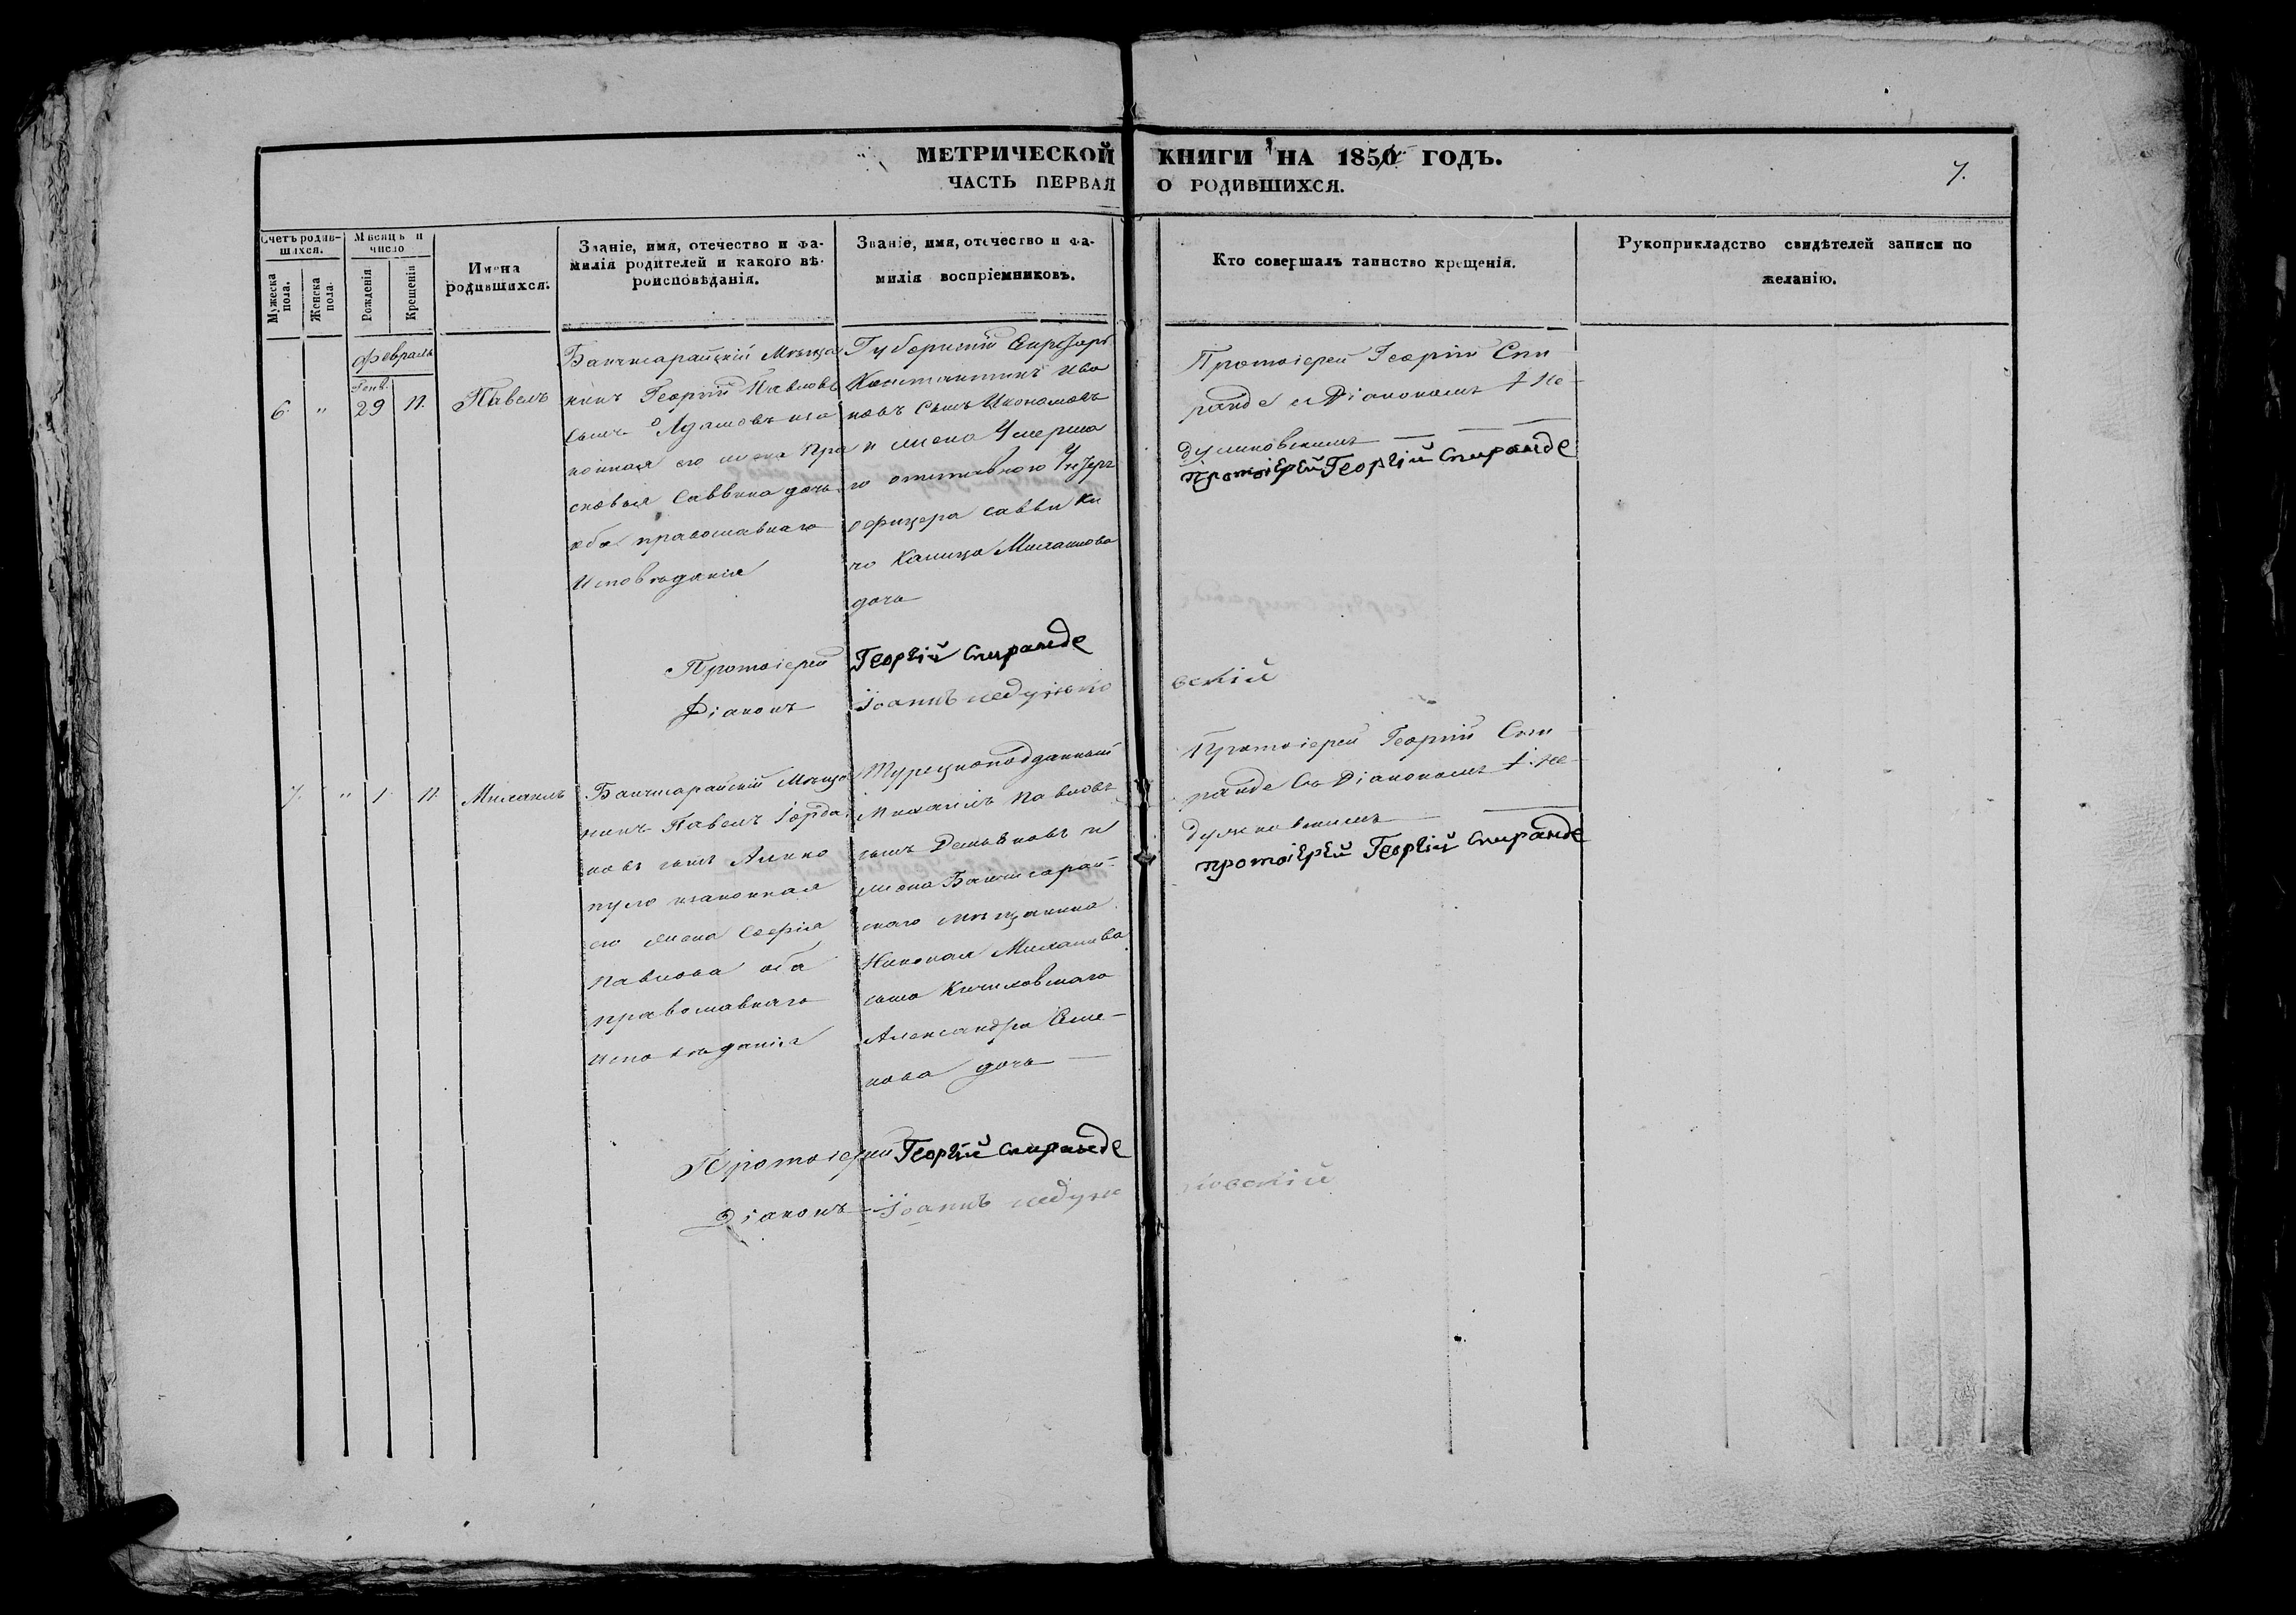 МЕТРИЧЕСКОЙ КНИГИ НА 1850 ГОДЪ.
ЧАСТЬ ПЕРВАЯ О РОДИВШИХСЯ.
7.
Счетъ родив-
шихся.
Мужеска пола.
Женска пола.
Мѣсяцъ и
число
Рожденія
Крещенія
Имена
родившихся.
Званіе, имя, отечество и фа-
милія родителей и какого вѣ-
роисповѣданія.
Званіе, имя, отечество и фа-
милія воспріемниковъ.
Кто совершалъ таинство крещенія.
Рукоприкладство свидѣтелей записи по
желанію.
Февраль
Генв.
6. " 29 11. Павелъ
Бахчисарайскій Мѣща
нинъ Георгій Павловъ
сынъ Адамовъ иза
конная его жена Пра
сковья Саввина дочь
оба православнаго
Исповѣданія
Губернскій Секретарь
Константинъ Ива
новъ Сынъ Икономовъ
и жена Умерша
го отставного Унтеръ
офицера саввы Ки
Михаилова
дочь
Протоіерей Георгій Спи
ранде съ Діакономъ І. Не-
дужковскимъ
протоіерей Георгій Спиранде
Протоіерей Георгій Спиранде
Діаконъ Іоаннъ недужковскій
7. " 1. 11. Михаилъ
Бахчисарайскій Мѣща
нинъ Павелъ Іорда
новъ сынъ Алико
пуло изаконная
его жена Софія
Павлова оба
православнаго
исповѣданія
Турецкоподданный
Михаилъ Павловъ
сынъ Демьяновъ и
жена Бахчисарай-
скаго мѣщанина
Николая Михаилова
сына
Александра Семе-
нова дочь
Протоіерей Георгій Спи
ранде Съ Діакономъ І. Не-
дужковскимъ
протоіерей Георгій Спиранде
Протоіерей Георгій Спиранде
Діаконъ Іоаннъ недужковскій